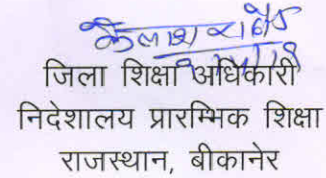 जिला शिक्षा अधिकारी
निदेशालय प्रारम्भिक शिक्षा
राजस्थान, बीकानेर